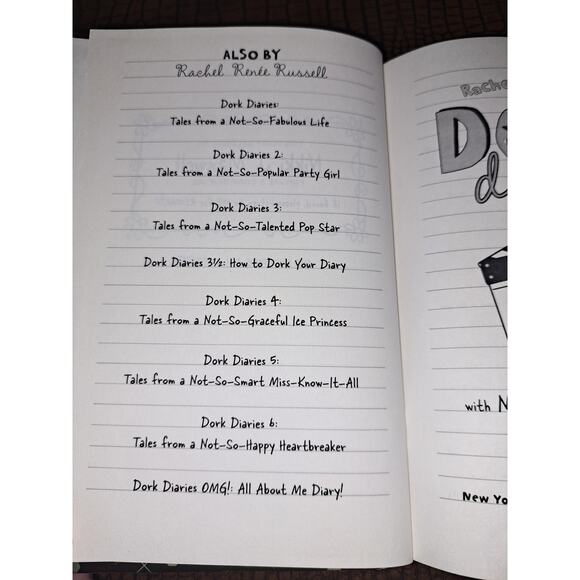 ALSO BY
Rachel Renée Russell
Dork Diaries:
Tales from a Not-So-Fabulous Life
Dork Diaries 2:
Tales from a Not-So-Popular Party Girl
Dork Diaries 3:
Tales from a Not-So-Talented Pop Star
Dork Diaries 3½: How to Dork Your Diary
Dork Diaries 4:
Tales from a Not-So-Graceful Ice Princess
Dork Diaries 5:
Tales from a Not-So-Smart Miss-Know-It-All
Dork Diaries 6:
Tales from a Not-So-Happy Heartbreaker
Dork Diaries OMG!: All About Me Diary!
Rache
D
d
with N
New Yo